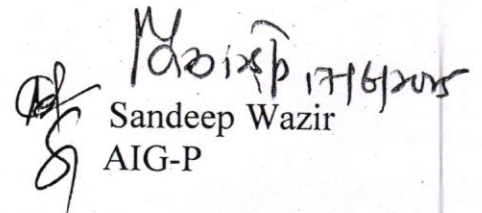 17/6/2025
Sandeep Wazir
AIG-P